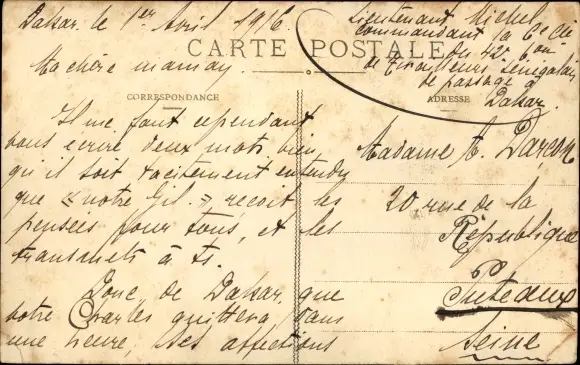 Dakar le 1er Avril 1916.
CARTE POSTALE
Ma chère maman.
CORRESPONDANCE
Il me faut cependant
vous écrire deux mots bien
qu'il soit tacitement entendu
que « notre Gil. » reçoit les
pensées pour tous, et les
transmets à ts.
Donc de Dakar, que
votre Charles quittera dans
une heure, ses affections
Lieutenant Michel
commandant la 6e Cie
du 42e bon
de tirailleurs sénégalais
de passage à
Dakar.
ADRESSE
Madame A.
20 rue de la
République
Puteaux
Seine